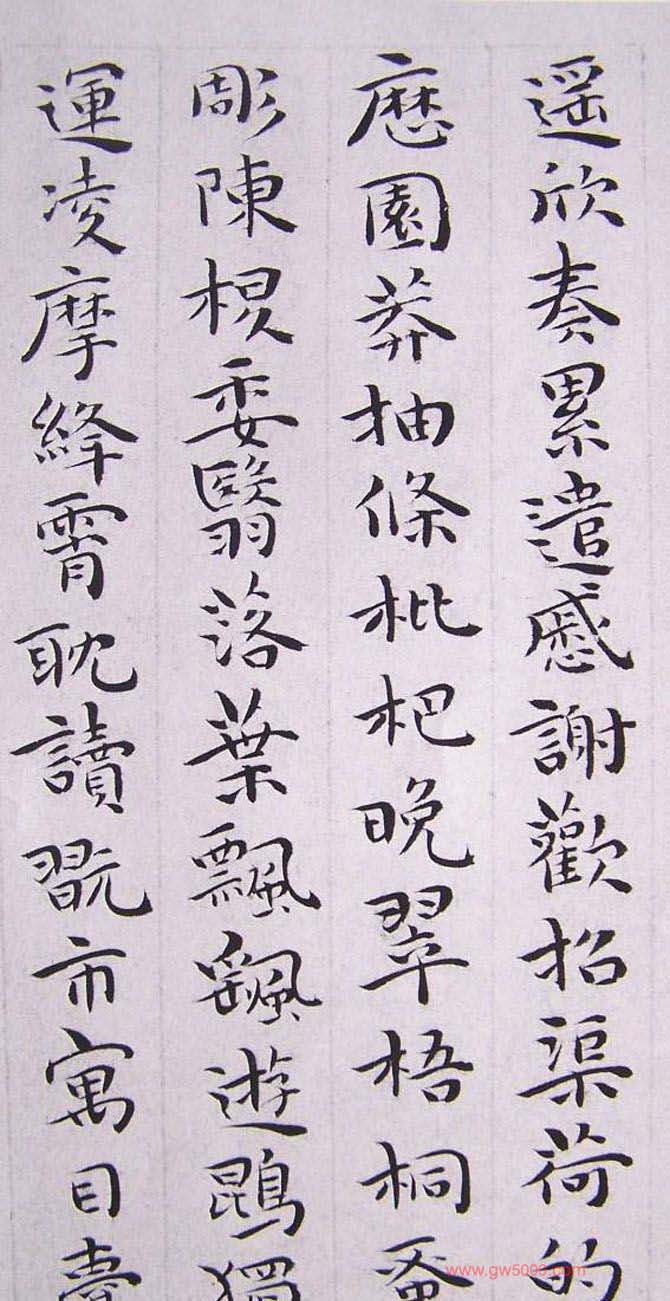 遥欣奏累遣慼謝歡招渠荷的
歷園莽抽條枇杷晚翠梧桐蚤
彫陳根委翳落葉飄颻遊鵾獨
運凌摩絳霄耽讀翫市寓目囊
www.gw5000.com